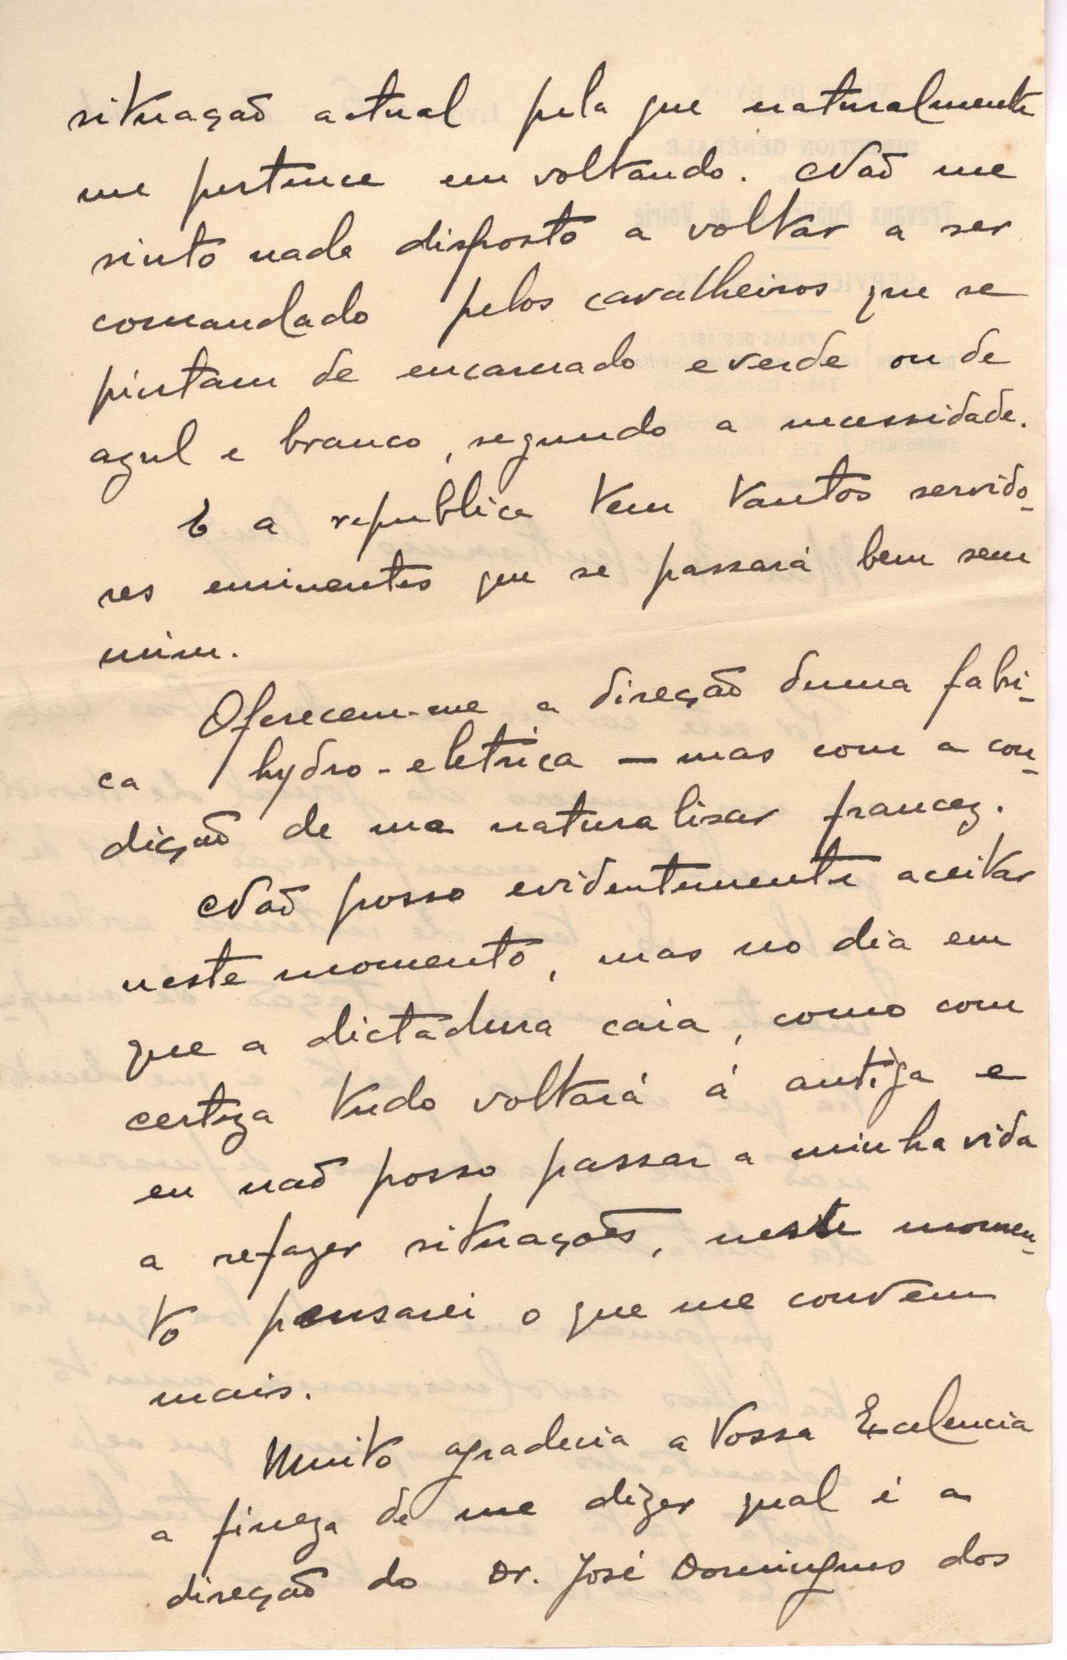 situação actual pela que naturalmente
me pertence em voltando. Não me
sinto nada disposto a voltar a ser
comandado pelos cavalheiros que se
pintam de encarnado e verde ou de
azul e branco, segundo a necessidade.
E a republica tem tantos servido-
res eminentes que se passará bem sem
mim.
Oferecem-me a direção duma fabri-
ca hydro-eletrica — mas com a con-
dição de me naturalisar francez.
Não posso evidentemente aceitar
neste momento, mas no dia em
que a dictadura caia, como com
certeza tudo voltará á antiga e
eu não posso passar a minha vida
a refazer situações, neste momen-
to pensarei o que me convem
mais.
Muito agradecia a Vossa Excelencia
a fineza de me dizer qual é a
direção do Dr. José Domingues dos